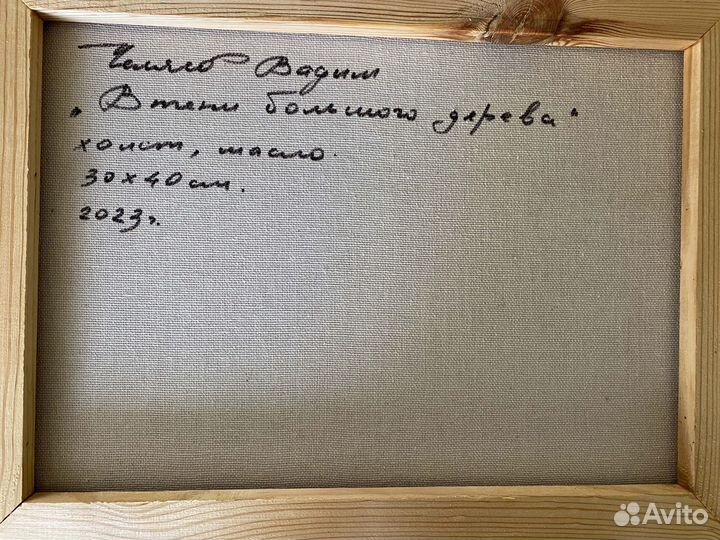 Чемясов Вадим
„В тени большого дерева“
холст, масло.
30 х 40 см.
2023г.
Avito